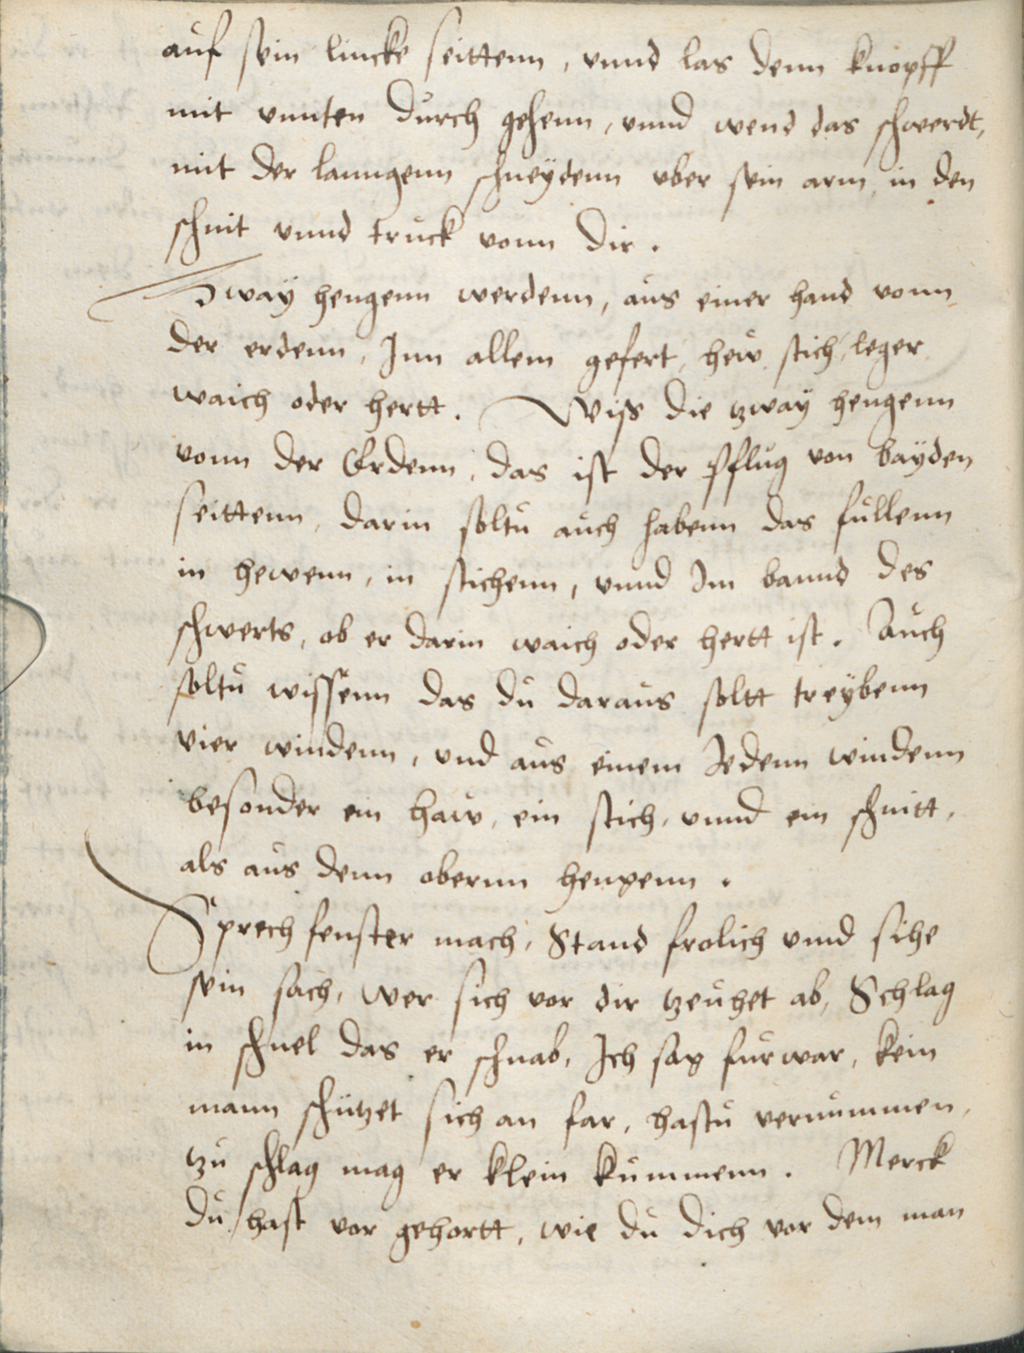 auf sein lincke seittenn, vnnd las denn knöpff
mit vnnten durch gehenn, vnnd wend das schwerdt,
mit der lanngenn schneydenn vber sein arm, in den
schnit vnnd truck vonn dir.
Zway hengenn werdenn, aus einer hand vonn
der erdenn, Inn allem gefert, hew stich, leger
waich oder hertt. Wiss die tzway hengenn
vonn der Erdenn, das ist der Pflug von bayden
seittenn, darin soltu auch habenn das fullenn
in hewenn, in stichenn, vnnd Im bannd des
schwerts, ob er darin waich oder hertt ist. Auch
soltu wissenn das du daraus soltt treybenn
vier windenn, vnd aus einem Jedenn windenn
besonder ein haw, ein stich, vnnd ein schnitt,
als aus denn obernn hengenn.
Sprech fenster mach, Stand frolich vnnd sihe
sein sach, wer sich vor dir tzeuhet ab, Schlag
in schnel das er schnab, Ich sag furwar, kein
mann schützet sich an far, hastu vernummen,
tzu schlag mag er klein kummenn. Merck
du hast vor gehortt, wie du dich vor dem man